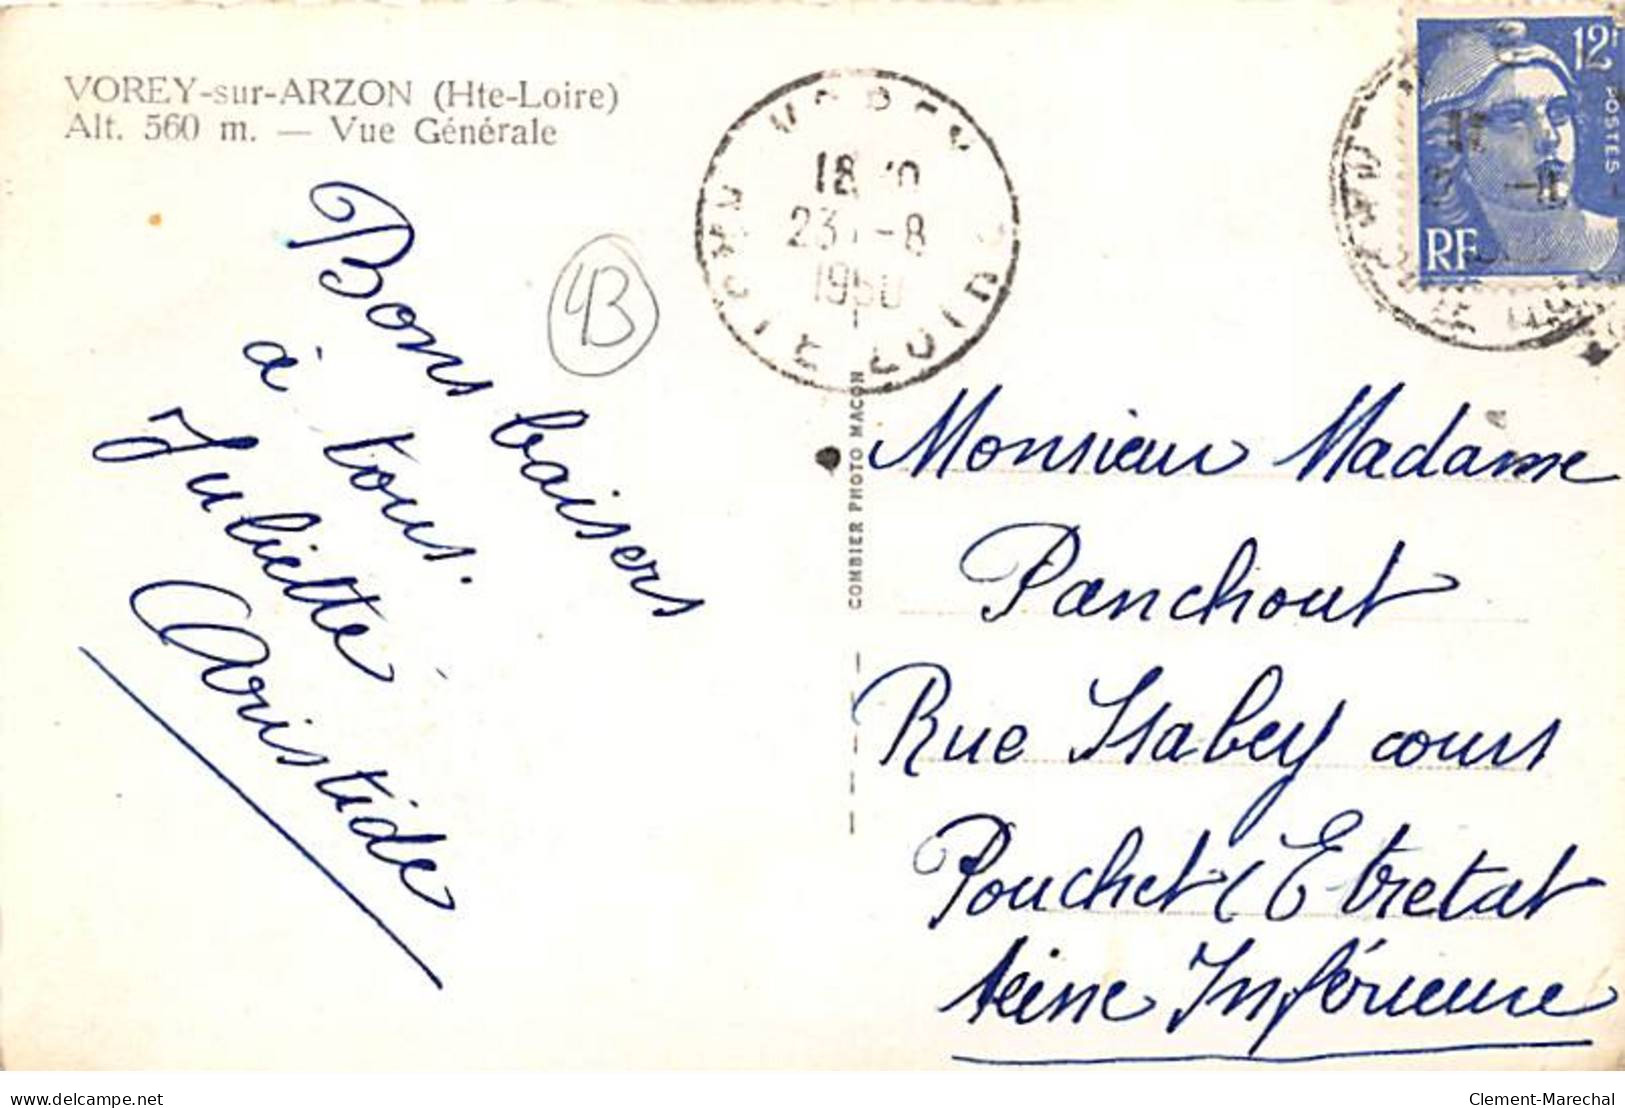 VOREY-sur-ARZON (Hte-Loire)
Alt. 560 m. — Vue Générale
Bons baisers
à tous.
Juliette
Aristide
43
VOREY
18
23 -8
1950
HTE LOIRE
COMBIER PHOTO MACON
12F
POSTES
RF
Monsieur Madame
Panchout
Rue Isabey cours
Pouchet (Etretat
Seine Inférieure
Juliette
Clement-Marechal